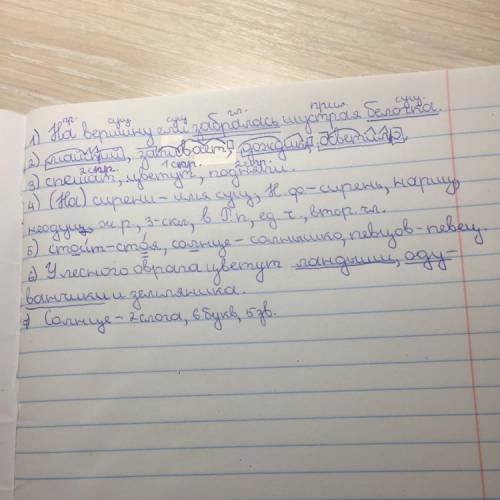 пр. сущ. сущ. гл. прил. сущ.
1) На вершину ели забралась шустрая белочка.
2) майский, закивают, дождик, осветила
2 спр. 1 спр. 2 спр.
3) спешат, цветут, подняли.
4) (На) сирени - имя сущ, Н.ф-сирень, нариц,
неодуш, ж.р, 3-скл, в П.п, ед.ч., втор. чл.
5) стоит-стоя, солнце - солнышко, певцов - певец.
6) У лесного оврага цветут ландыши, оду-
ванчики и земляника.
7 Солнце - 2 слога, 6 букв, 5 зв.